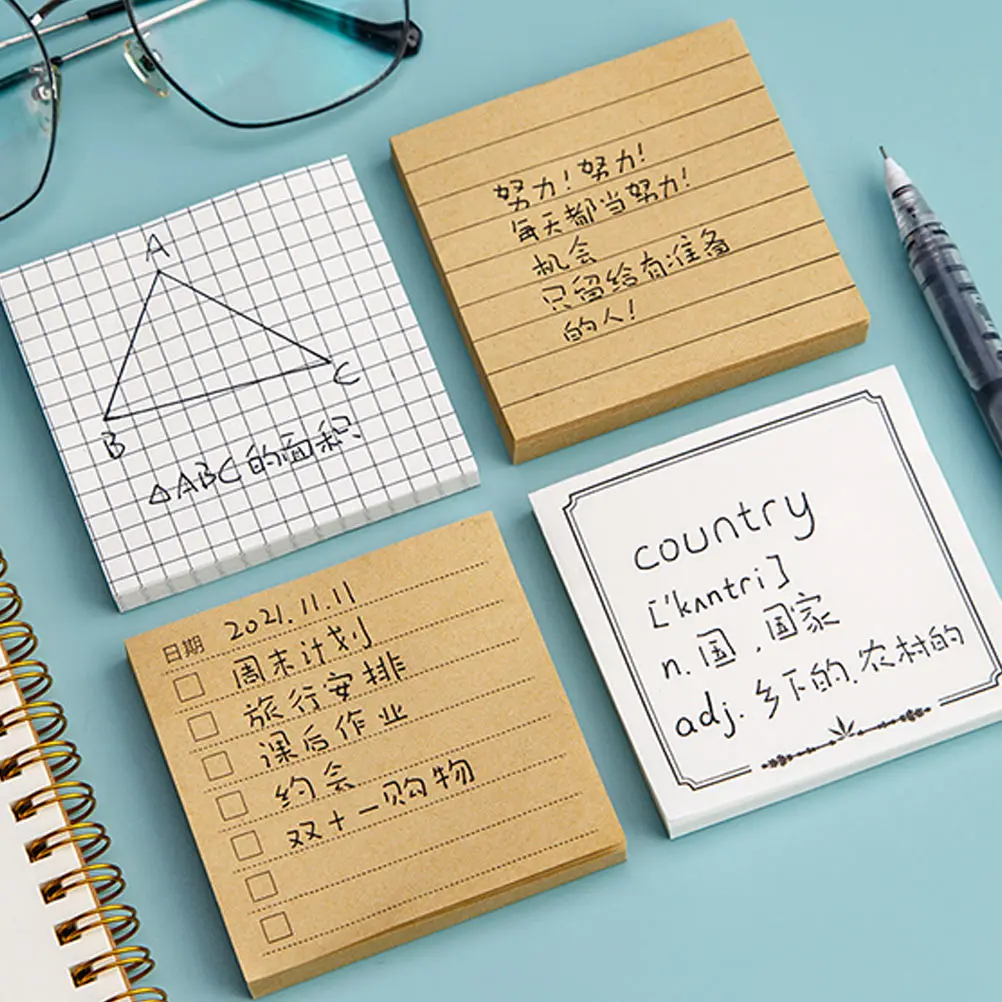 A
B
C
△ABC的面积
努力！努力！
每天都当努力！
机会
只留给有准备
的人！
日期 2021.11.11
周末计划
旅行安排
课后作业
约会
双十一购物
country
['kʌntri]
n.国，国家
adj.乡下的，农村的